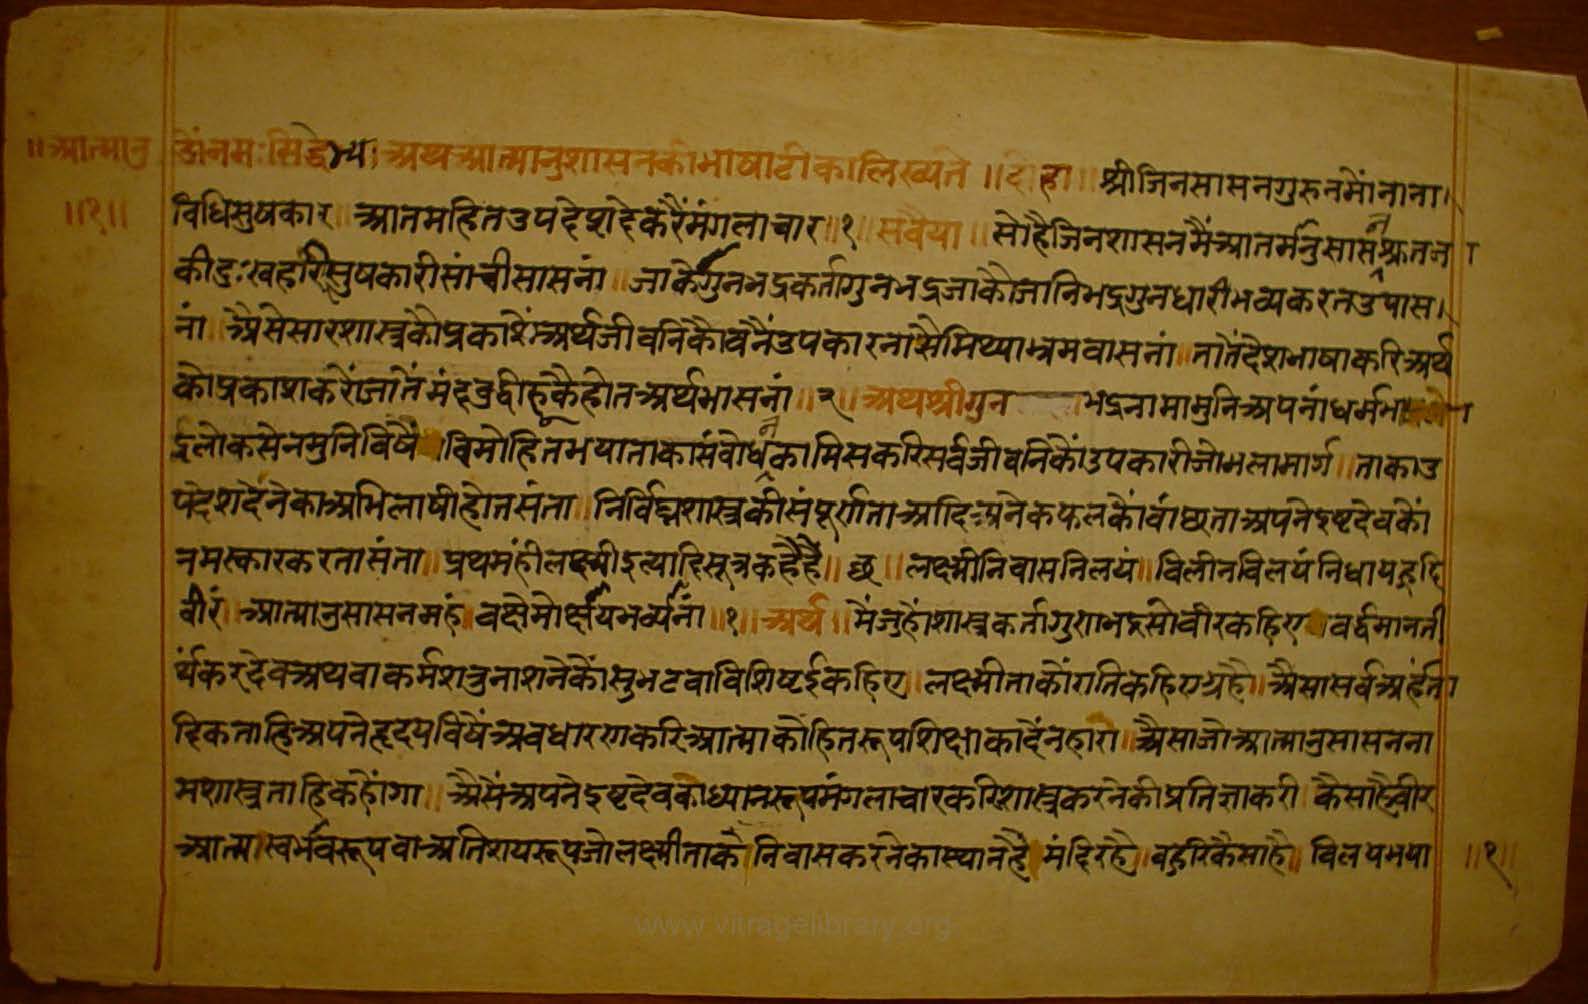 ॥आत्मानु
॥१॥
ॐनमःसिद्धेभ्यः अथआत्मानुशासनकीभाषाटीकालिख्यते ॥दोहा॥ श्रीजिनसासनगुरुनमोंनाना।
विधिसुषकार॥आतमहितउपदेशदेकरैंमंगलाचार॥१॥सवैया॥सोहैजिनशासनमैंआतमांनुसासंनश्रुतजा
कीदुःखहारीसुषकारीसांचीसासनां॥जाकेगुनभद्रकर्तागुनभद्रजाकौजानिभद्रगुनधारीभव्यकरतउपास।
नां॥अैसेसारशास्त्रकौप्रकाशेंअर्थजीवनिकौवनैंउपकारनासैमिथ्याभ्रमवासनां॥तातेंदेशभाषाकरिअर्थ
कोप्रकाशकरोंजातेंमंदबुद्वीहूकैहोतअर्थभासनां॥२॥अथश्रीगुन भद्रनामामुनिअपनांधर्मभा
ईलोकसेनमुनिविषैं विमोहितभयाताकासंवोधनकामिसकरिसर्वजीवनिकौंउपकारीजोभलामार्ग॥ताकाउ
पदेशदेंनेकाअभिलाषीहोतसंता॥निर्विघ्नशास्त्रकीसंपूर्णताआदिअनेकफलकौंवांछताअपनेइष्टदेवकौं
नमस्कारकरतासंता॥प्रथमंहीलक्ष्मीइत्यादिसूत्रकहैंहैं॥छ॥लक्ष्मीनिवासनिलयं॥विलीनविलयंनिधायहृदि
वीरं॥आत्मानुसासनमहं॥वक्षेमोक्षायभव्यानां॥१॥अर्थ॥मेंजुहोंशास्त्रकर्तागुणभद्रसोवीरकहिए वर्द्धमानती
र्थंकरदेवअथवाकर्मशत्रुनाशनेकौंसुभटवाविशिष्टईकहिए॥लक्ष्मीताकौंरातिकहिएग्रहै॥अैसासर्वअर्हंता
दिकताहिअपनेहृदयविषेंअवधारणकरिआत्माकोहितरूपशिक्षाकादेंनहारा॥अैसाजोआत्मानुसासनना
मशास्त्रताहिकहोंगा॥अैसेंअपनेइष्टदेवकौध्यानरूपमंगलाचारकरिशास्त्रकरनेकीप्रतिज्ञाकरी कैसाहैवीर
आत्मस्वभावरूपवाअतिशयरूपजोलक्ष्मीताकौनिवासकरनेकास्थानहै मंदिरहै॥वहुरिकैसाहै॥विलयभया
॥१॥
www.vitragelibrary.org